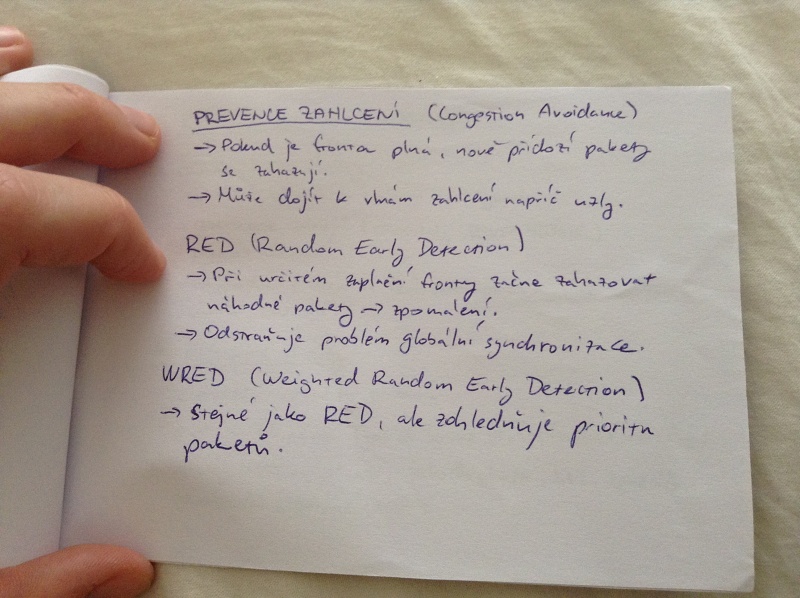 PREVENCE ZAHLCENÍ (Congestion Avoidance)
→ Pokud je fronta plná, nově příchozí pakety
se zahazují.
→ Může dojít k vlnám zahlcení napříč uzly.
RED (Random Early Detection)
→ Při určitém zaplnění fronty začne zahazovat
náhodné pakety → zpomalení.
→ Odstraňuje problém globální synchronizace.
WRED (Weighted Random Early Detection)
→ Stejné jako RED, ale zohledňuje prioritu
paketů.